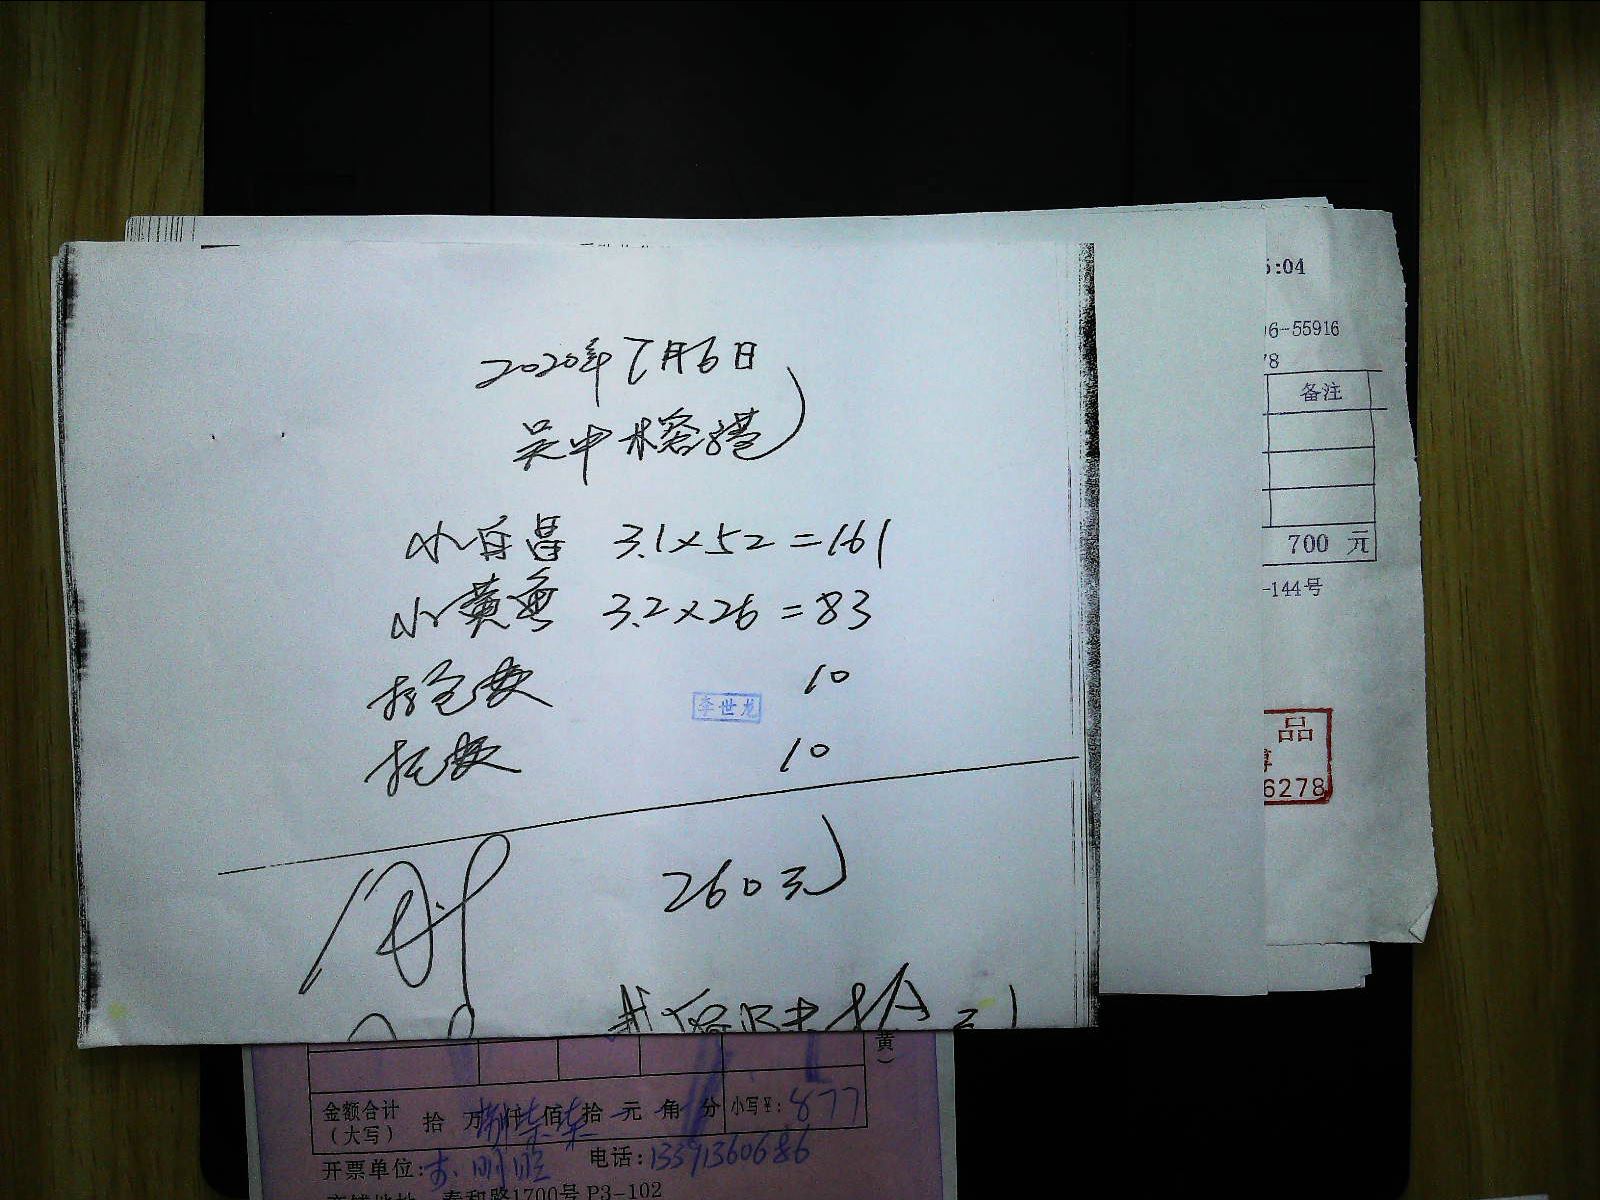 2020年7月6日
吴中木容港
小白昌 3.1×52=161
小黄鱼 3.2×26=83
打包费 10
李世龙
托费 10
260元
5:04
06-55916
78
备注
700 元
-144号
品
6278
黄）
金额合计
（大写）
拾 万 仟 佰 拾 元 角 分
小写¥: 877
开票单位:
电话: 13391360686
泰和路1700号 P3-102